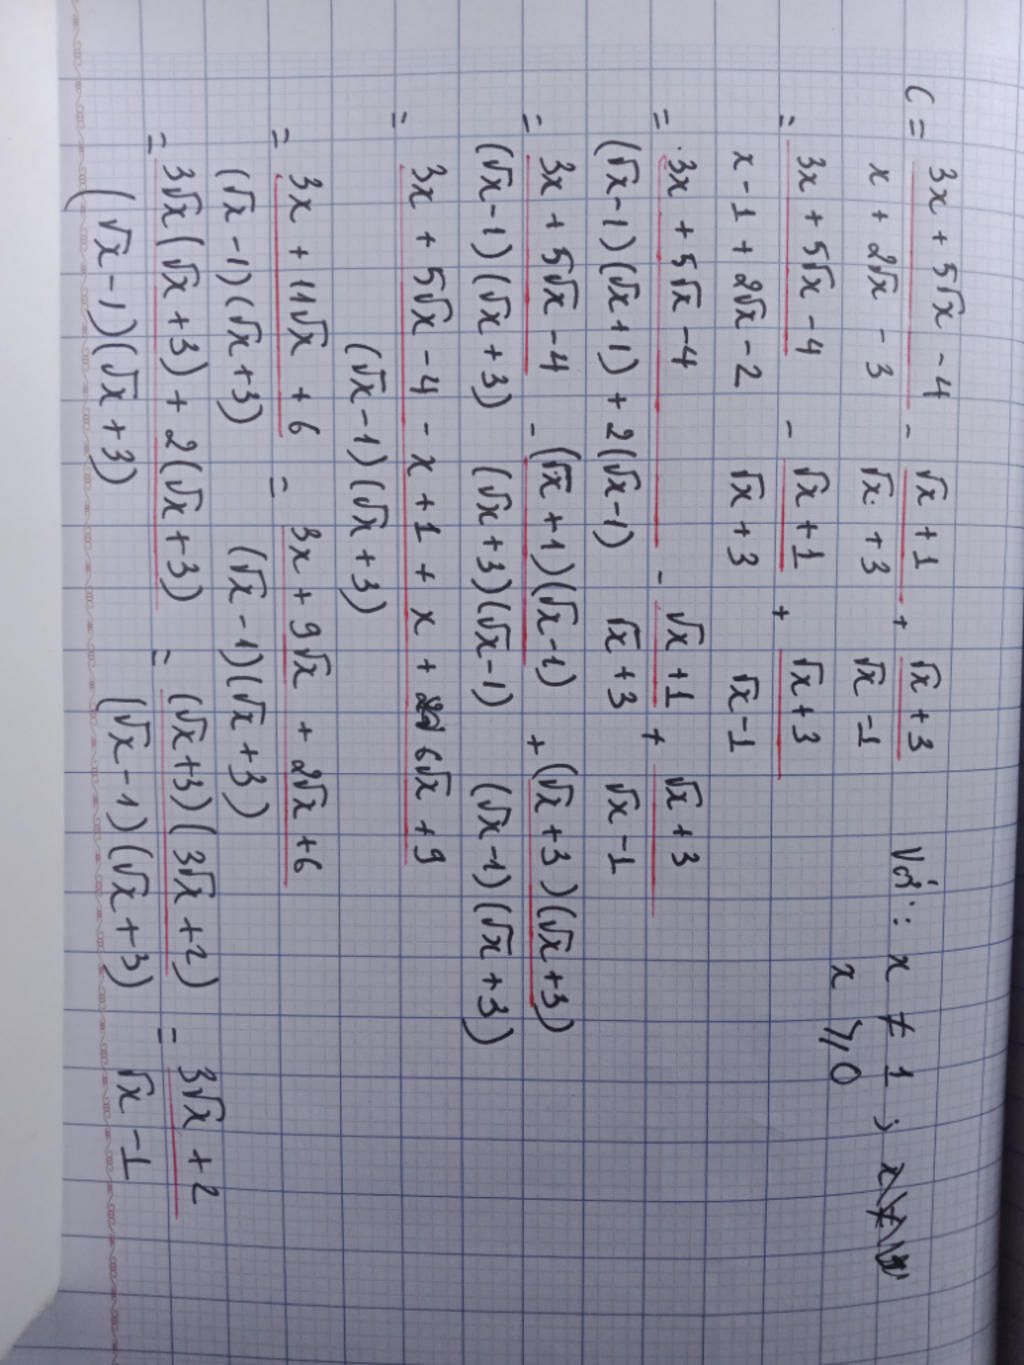 C = 3x + 5√x - 4 / x + 2√x - 3 - √x + 1 / √x + 3 + √x + 3 / √x - 1 Với: x ≠ 1 ;
x ⩾ 0
= 3x + 5√x - 4 / x - 1 + 2√x - 2 - √x + 1 / √x + 3 + √x + 3 / √x - 1
= 3x + 5√x - 4 / (√x - 1)(√x + 1) + 2(√x - 1) - √x + 1 / √x + 3 + √x + 3 / √x - 1
= 3x + 5√x - 4 / (√x - 1)(√x + 3) - (√x + 1)(√x - 1) / (√x + 3)(√x - 1) + (√x + 3)(√x + 3) / (√x - 1)(√x + 3)
= 3x + 5√x - 4 - x + 1 + x + 6√x + 9 / (√x - 1)(√x + 3)
= 3x + 11√x + 6 / (√x - 1)(√x + 3) = 3x + 9√x + 2√x + 6 / (√x - 1)(√x + 3)
= 3√x(√x + 3) + 2(√x + 3) / (√x - 1)(√x + 3) = (√x + 3)(3√x + 2) / (√x - 1)(√x + 3) = 3√x + 2 / √x - 1